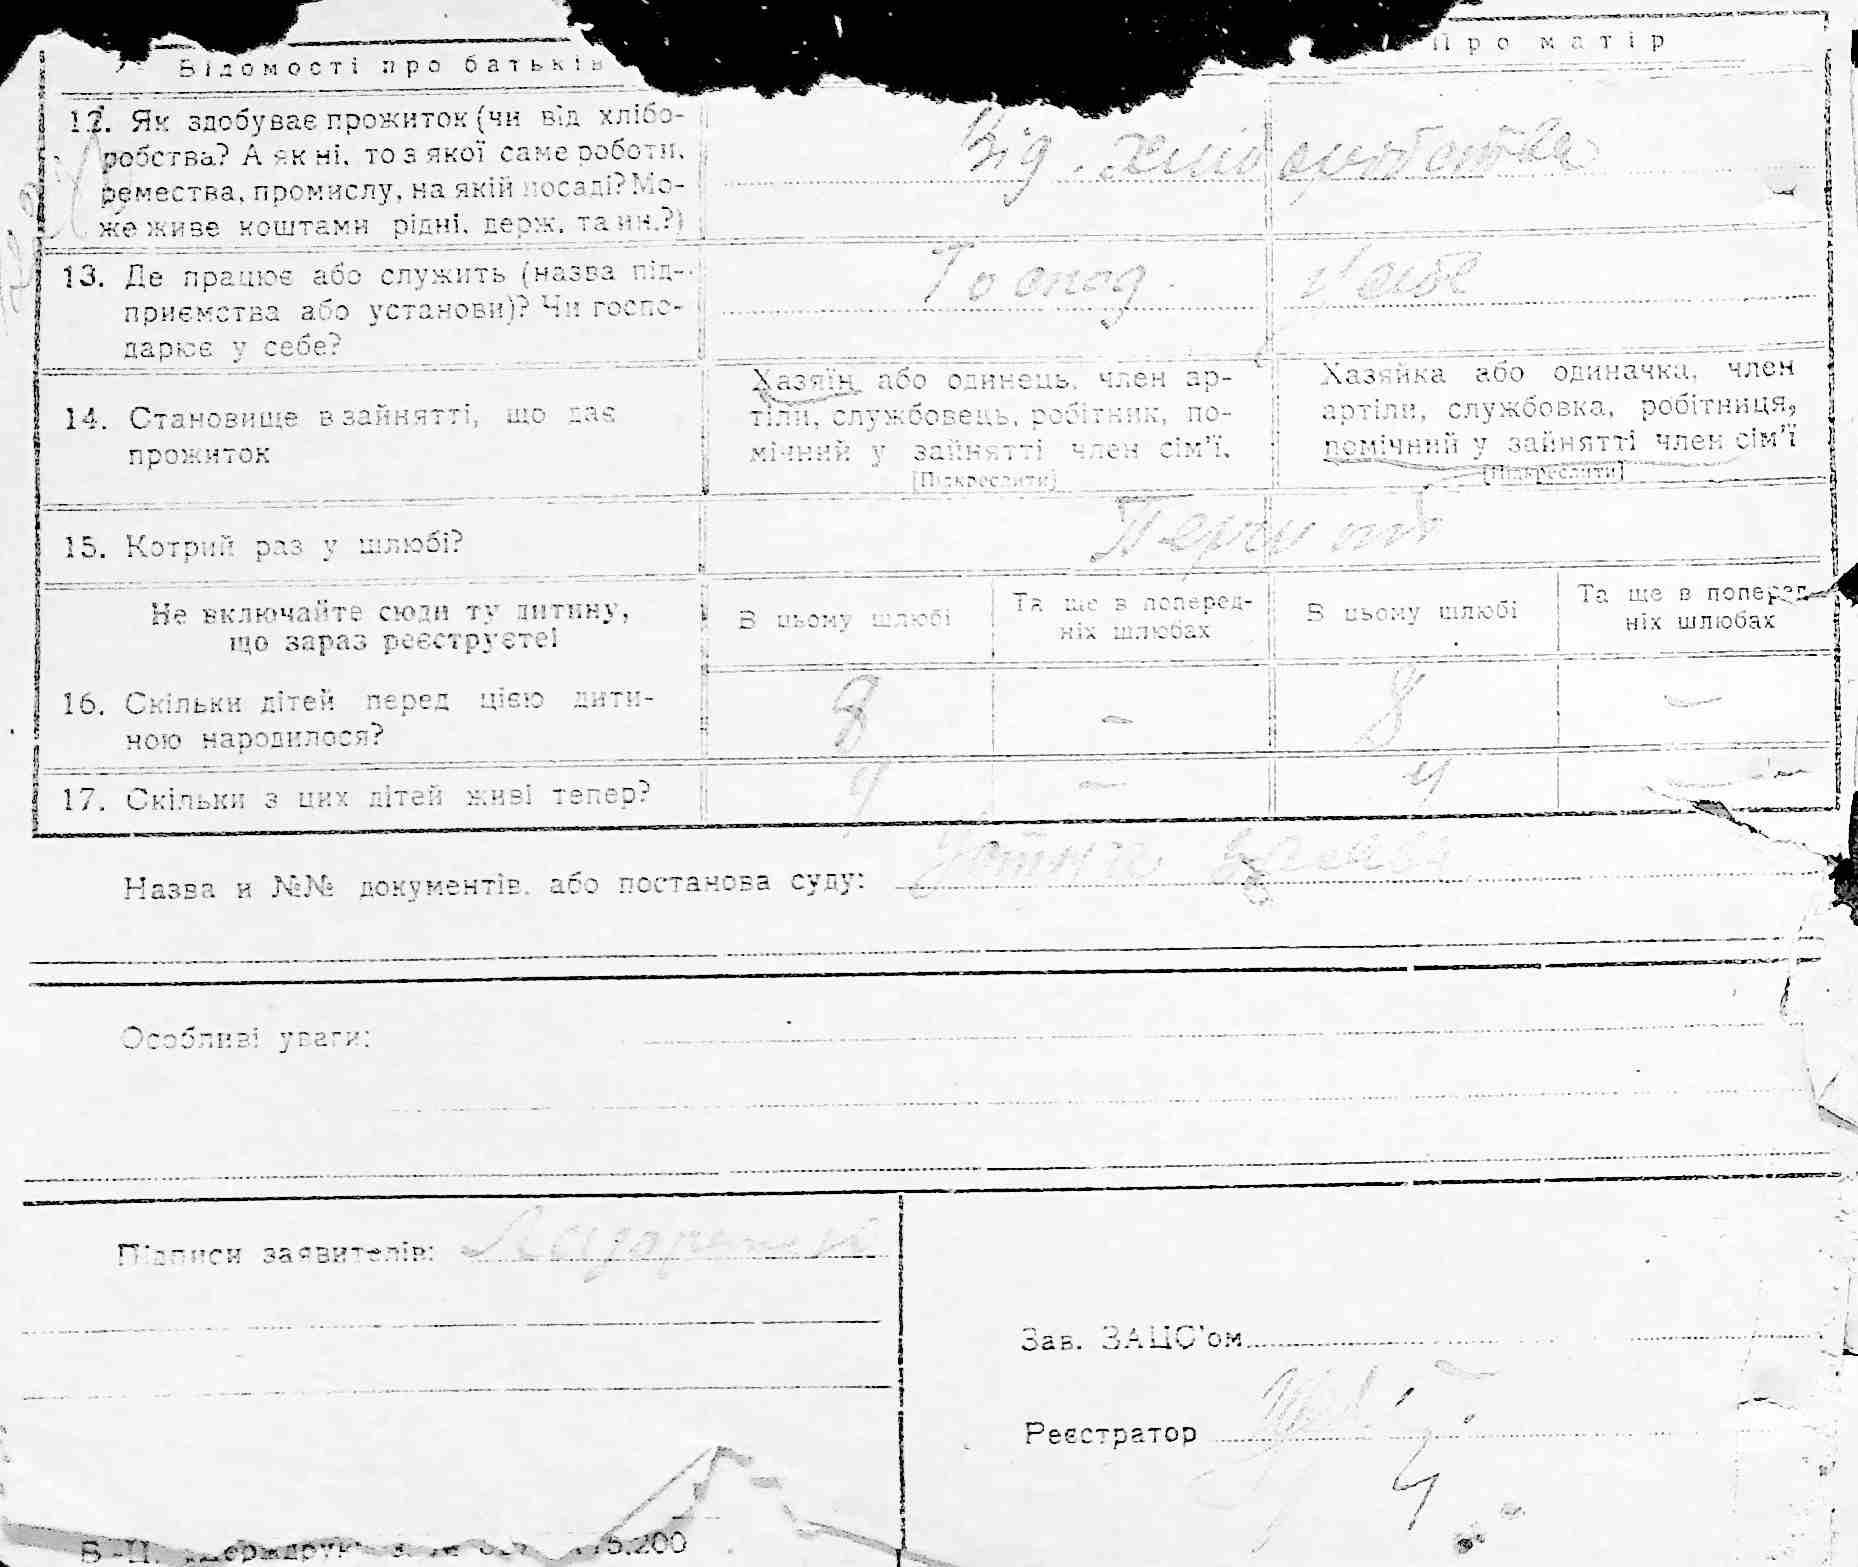 Відомості про батьків
Про матір
12. Як здобуває прожиток (чи від хлібо-
робства? А як ні, то з якої саме роботи,
ремества, промислу, на якій посаді? Мо-
же живе коштами рідні, держ. та ин.?)
Від хліборобства
13. Де працює або служить (назва під-
приємства або установи)? Чи госпо-
дарює у себе?
Господ. у себе
14. Становище в зайнятті, що дає
прожиток
Хазяїн або одинець, член ар-
тіли, службовець, робітник, по-
мічний у зайнятті член сім'ї.
[Підкреслити]
Хазяйка або одиначка, член
артіли, службовка, робітниця,
помічний у зайнятті член сім'ї
[Підкреслити]
15. Котрий раз у шлюбі?
Не включайте сюди ту дитину,
що зараз реєструєте!
В цьому шлюбі
Та ще в поперед-
ніх шлюбах
В цьому шлюбі
Та ще в поперед-
ніх шлюбах
16. Скільки дітей перед цією дити-
ною народилося?
8 – 8 –
17. Скільки з цих дітей живі тепер?
4 – 4 –
Назва и №№ документів, або постанова суду:
Особливі уваги:
Підписи заявителів:
Зав. ЗАЦС'ом
Реєстратор
5.200